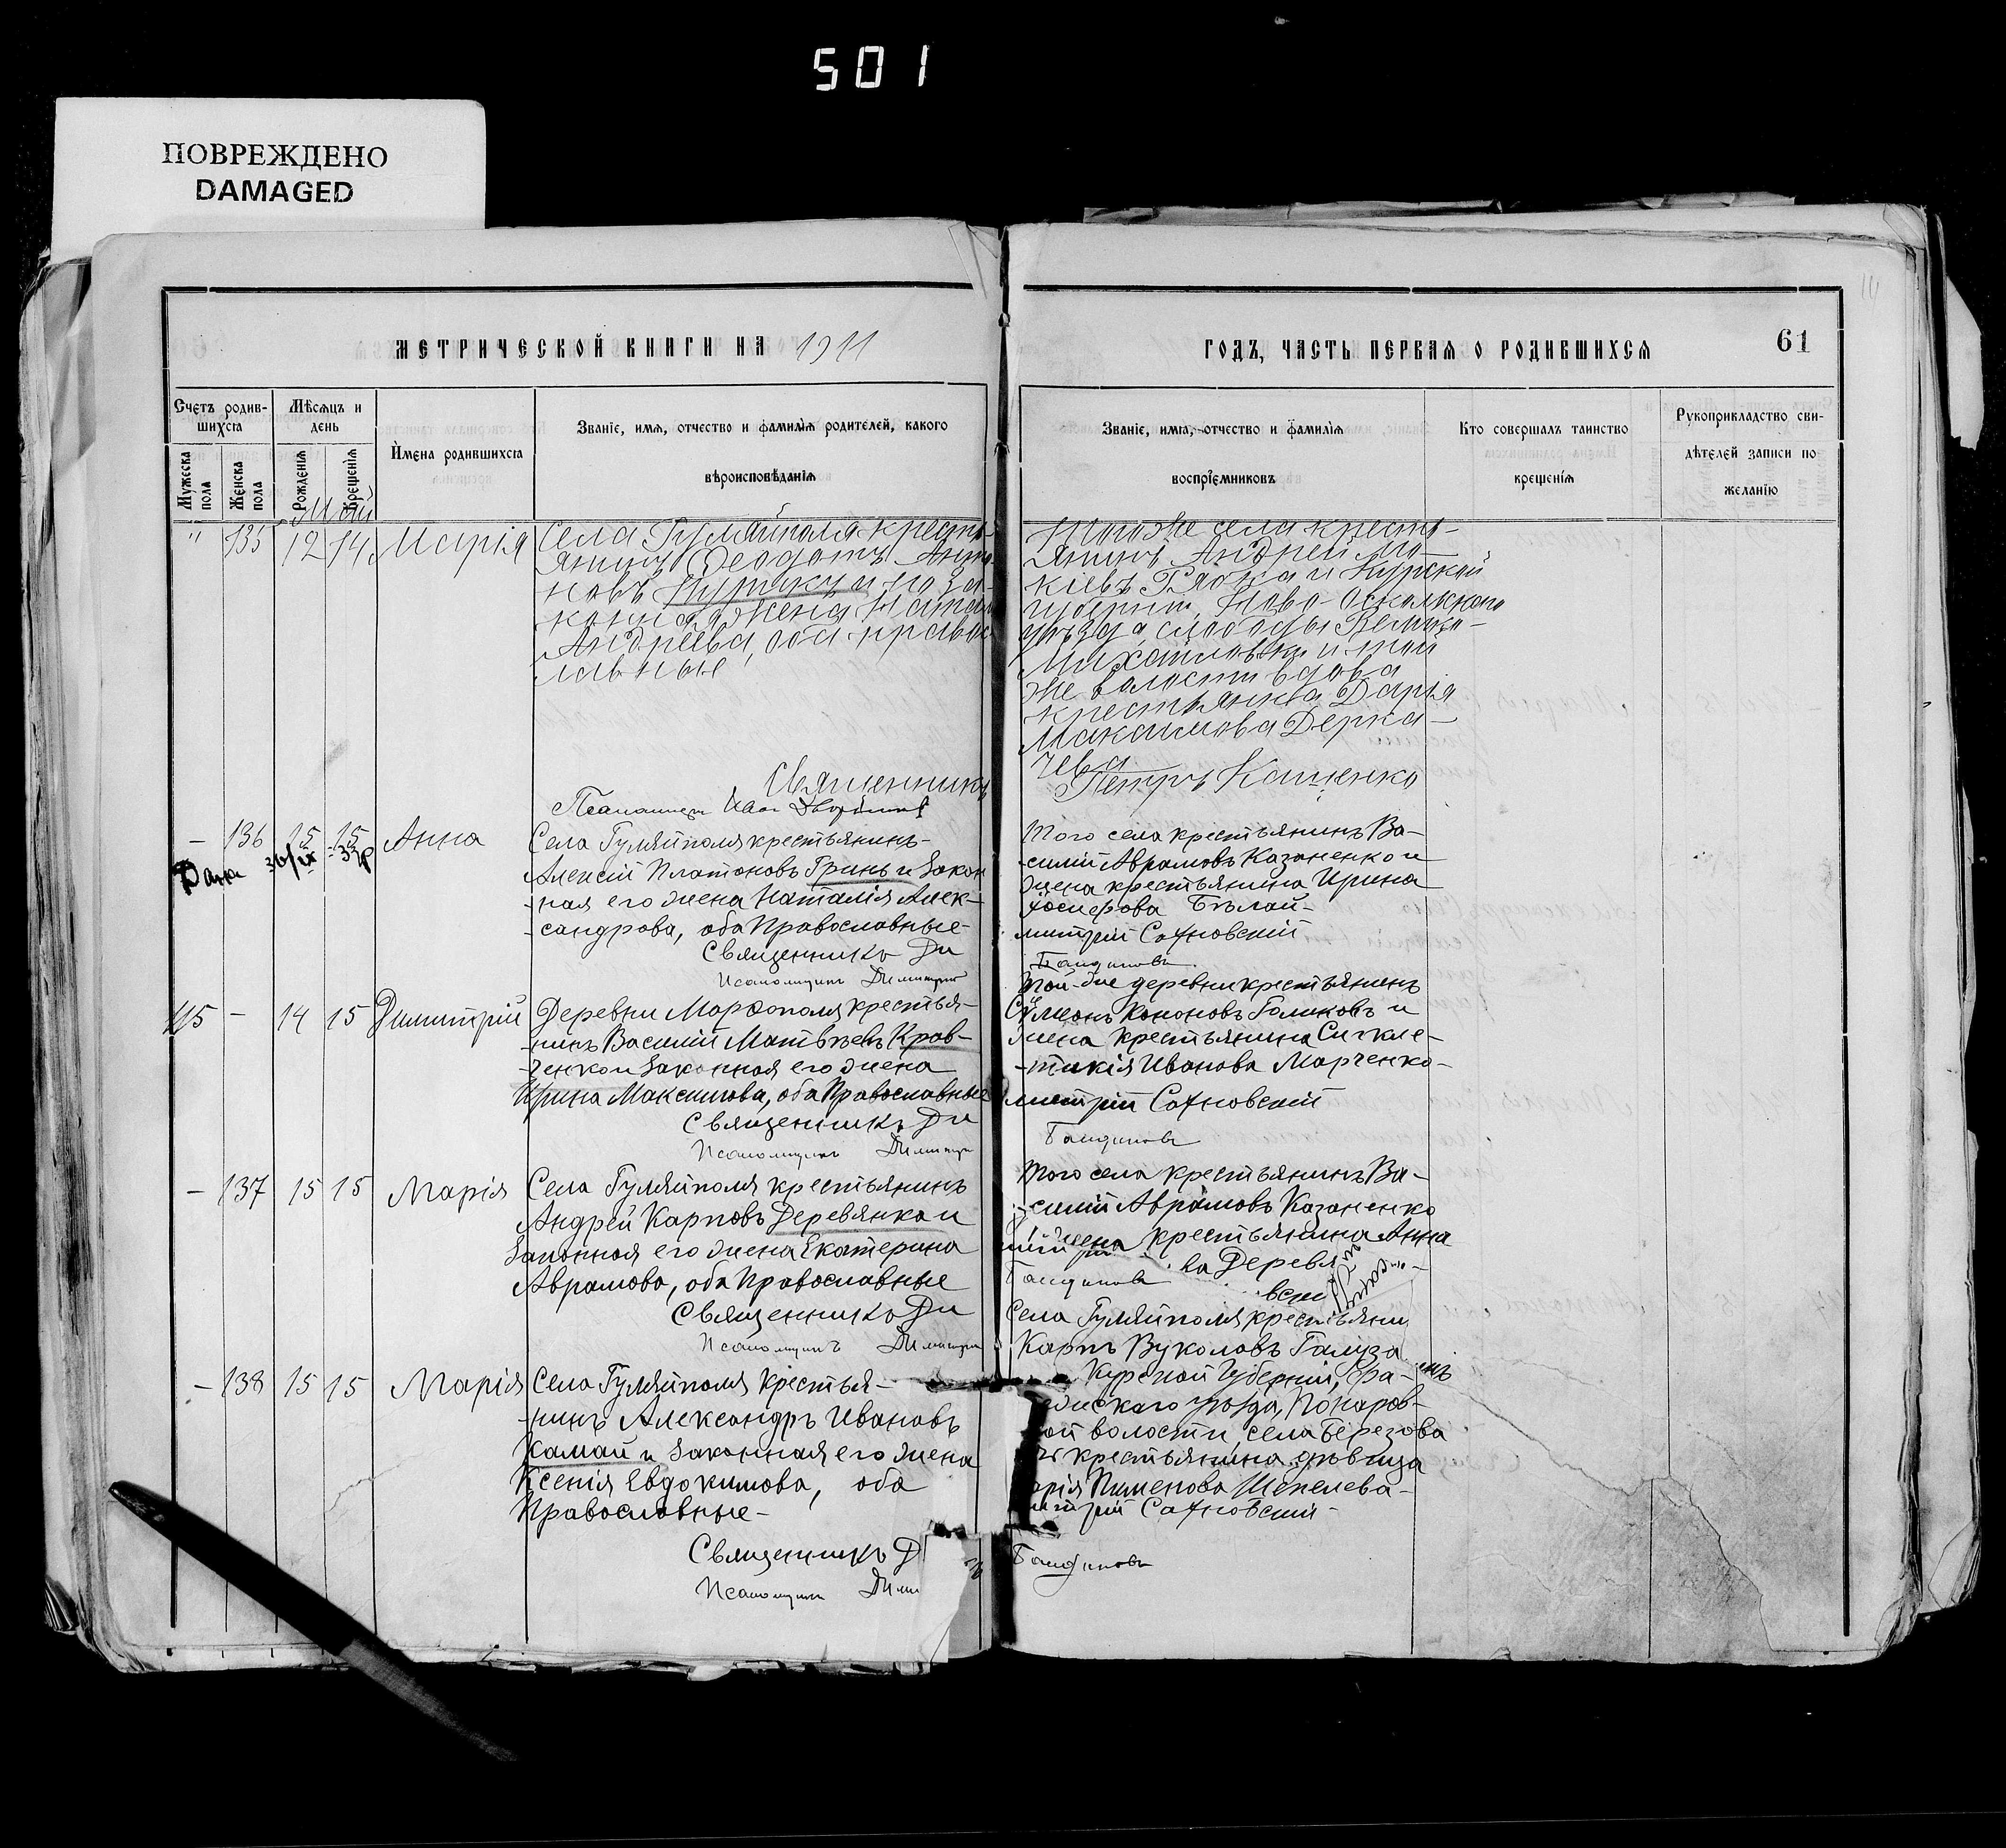 501
ПОВРЕЖДЕНО
DAMAGED
МЕТРИЧЕСКОЙ КНИГИ НА 1911
ГОДЪ, ЧАСТЬ ПЕРВАЯ О РОДИВШИХСЯ
61
Счетъ родив-
шихся
Мѣсяцъ и
день
Имена родившихся
Званіе, имя, отчество и фамилія родителей, какого
вѣроисповѣданія
Мужеска
пола
Женска
пола
Рожденія
Крещенія
Званіе, имя, отчество и фамилія
воспріемниковъ
Кто совершалъ таинство
крещенія
Рукоприкладство сви-
дѣтелей записи по
желанію
Май
" 135 12 14 Марія
Села Гуляйполя кресть-
янинъ Ѳеодотъ
новъ и по за-
кону жена
Андреева, оба правос-
лавные
Священникъ
Псаломщикъ Иван
Того же села кресть-
янинъ Андрей Мо-
кіевъ и Курской
губерніи, Ново-Оскольскаго
уѣзда, слободы Велико-
Михайловки и той
же волости вдова
крестьянка Дарія
Максимова Дерка-
чева
Петръ Кащенко
- 136 15 15 Анна
Дана 30/IX
Села Гуляйполя крестьянинъ
Алексій Платоновъ Гринь и закон
ная его жена Наталія Алек-
сандрова, оба Православные
Священникъ Ди
Псаломщикъ Димитрій
Того села крестьянинъ Ва-
силій Аврамовъ Казаненко и
жена крестьянина Ирина
Іосифова Бѣлай-
митрій Сахновскій
115 - 14 15 Димитрій
Деревни Марфополя крестья-
нинъ Василій Матвѣевъ Крав-
ченко и законная его жена
Ирина Максимова, оба Православные
Священникъ Ди
Псаломщикъ Димитрій
Той-же деревни крестьянинъ
Сумеонъ Кононовъ Голиковъ и
жена крестьянина Сигкле-
тикія Иванова Марченко-
митрій Сахновскій
- 137 15 15 Марія
Села Гуляйполя крестьянинъ
Андрей Карповъ Деревянко и
Законная его жена Екатерина
Аврамова, оба Православные
Священникъ Ди
Псаломщикъ
Того села крестьянинъ Ва-
силій Аврамовъ Казаненко
жена крестьянина Анна
ва Деревя
- 138 15 15 Марія
Села Гуляйполя Крестья-
нинъ Александръ Ивановъ
Камай и законная его жена
Ксенія Евдокимова, оба
Православные-
Священникъ Д
Псаломщикъ Дими
Села Гуляйполя крестьяни
нъ
Карпъ Вуколовъ Галуза
Курской Губерніи,
уѣзда,
ой волости, села Березова
крестьянина дѣвица
арія Пименова Шепелева-
митрій Сахновскій-